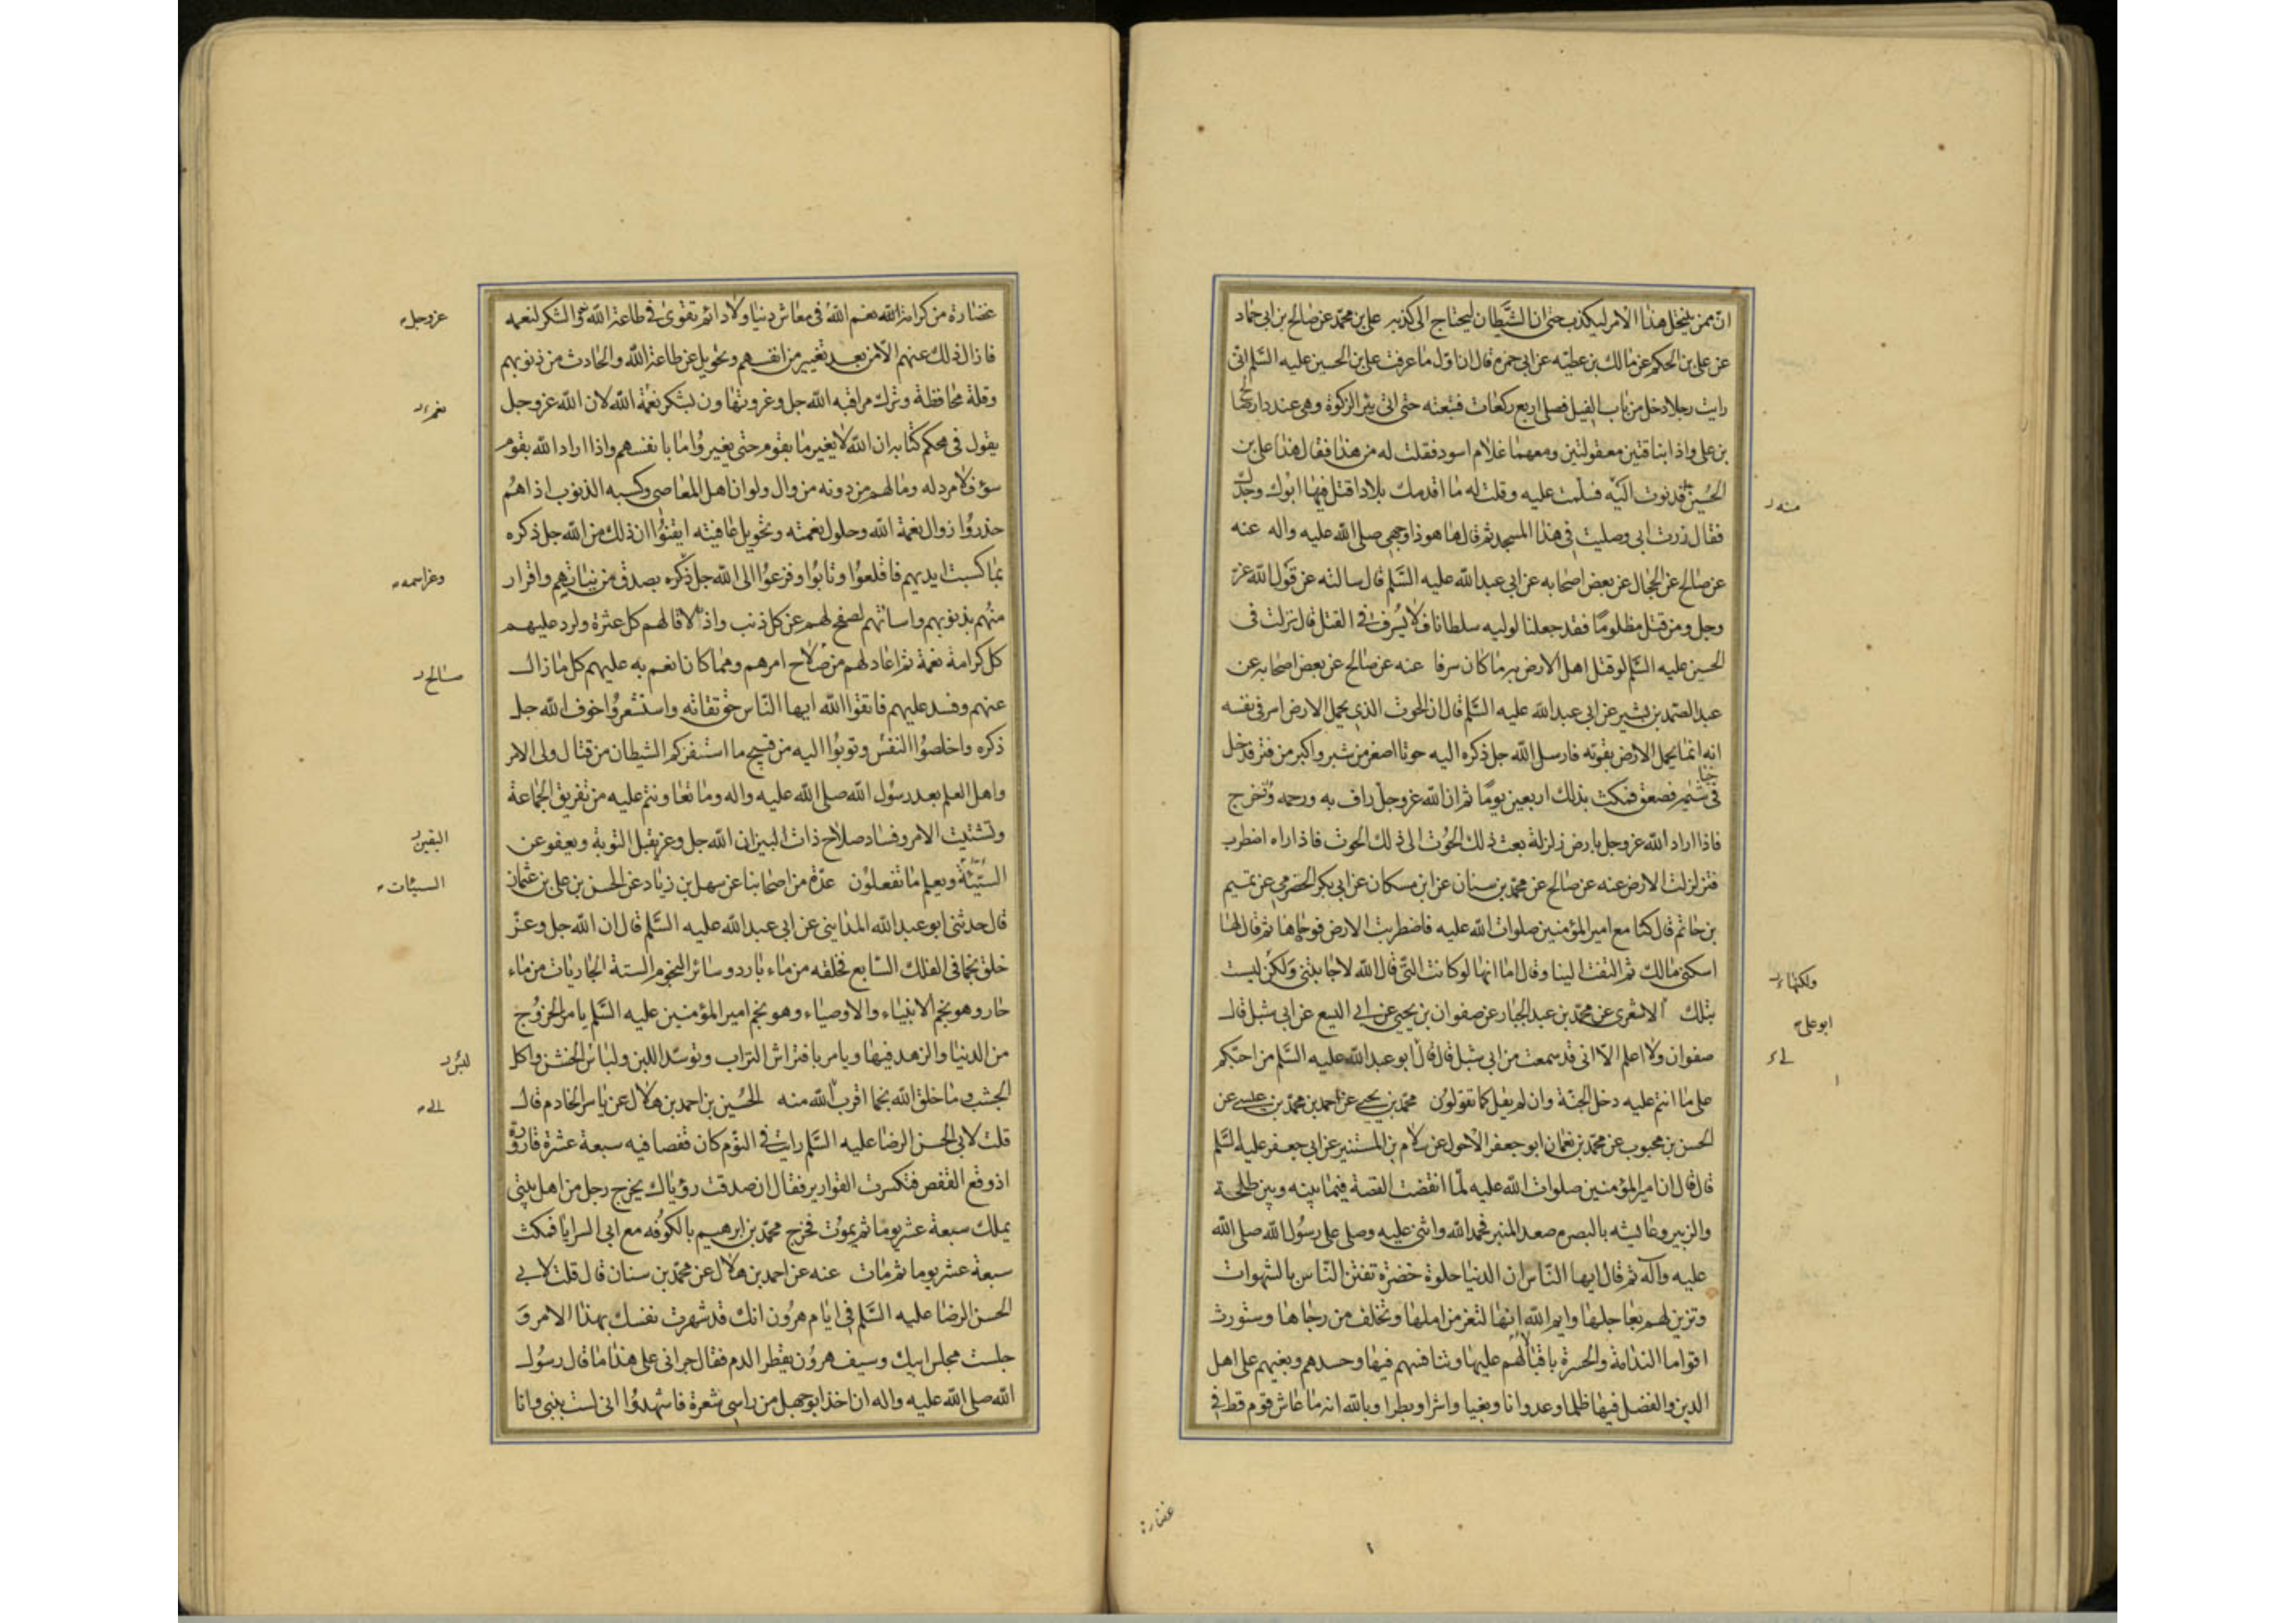 ان ممن ينتحل هذا الامر ليكذب حتى ان الشيطان ليحتاج الى كذبه علي بن محمد عن صالح بن ابي حماد
عن علي بن الحكم عن مالك بن عطيه عن ابي حمزه قال ان اول ما عرفت علي بن الحسين عليه السلم اني
رايت رجلا دخل من باب الفيل فصلى اربع ركعات فتبعته حتى اتى بئر الزكوة وهي عند دار صالح
بن علي واذا بناقتين معقولتين ومعهما غلام اسود فقلت له من هذا فقال هذا علي بن
الحسين فدنوت اليه فسلمت عليه وقلت له ما اقدمك بلادا قتل فيها ابوك وجدك
فقال زرت ابي وصليت في هذا المسجد ثم قال ها هو ذا وجهي صلى الله عليه واله عنه
عن صالح عن الحجال عن بعض اصحابه عن ابي عبد الله عليه السلم قال سالته عن قول الله عز
وجل ومن قتل مظلوما فقد جعلنا لوليه سلطانا فلا يسرف في القتل قال نزلت في
الحسين عليه السلم لو قتل اهل الارض به ما كان سرفا عنه عن صالح عن بعض اصحابه عن
عبد الصمد بن بشير عن ابي عبد الله عليه السلم قال ان الحوت الذي يحمل الارض اسر في نفسه
انه انما يحمل الارض بقوته فارسل الله جل ذكره اليه حوتا اصغر من شبر واكبر من فتر فدخل
في خياشيمه فصعق فمكث بذلك اربعين يوما ثم ان الله عز وجل راف به ورحمه وخرج
فاذا اراد الله عز وجل بارض زلزلة بعث ذلك الحوت الى ذلك الحوت فاذا راه اضطرب
فتزلزلت الارض عنه عن صالح عن محمد بن سنان عن ابن مسكان عن ابي بكر الحضرمي عن تميم
بن حاتم قال كنا مع امير المؤمنين صلوات الله عليه فاضطربت الارض فوحاها ثم قال لها
اسكني مالك ثم التفت الينا وقال اما انها لو كانت التي قال الله لاجابتني ولكن ليست
بتلك الاشعري عن محمد بن عبد الجبار عن صفوان بن يحيى عن ابي اليسع عن ابي شبل قال
صفوان ولا اعلم الا اني قد سمعت من ابي شبل قال قال ابو عبد الله عليه السلم من احبكم
على ما انتم عليه دخل الجنة وان لم يقل كما تقولون محمد بن يحيى عن احمد بن محمد بن عيسى عن
الحسن بن محبوب عن محمد بن نعمان ابو جعفر الاحول عن سلام بن المستنير عن ابي جعفر عليه السلم
قال قال ان امير المؤمنين صلوات الله عليه لما انقضت القصة فيما بينه وبين طلحة
والزبير وعايشه بالبصره صعد المنبر فحمد الله واثنى عليه وصلى على رسول الله صلى الله
عليه واله ثم قال ايها الناس ان الدنيا حلوة خضرة تفتن الناس بالشهوات
وتزين لهم بعاجلها وايم الله انها لتغر من املها وتخلف من رجاها وستورث
اقواما الندامة والحسرة باقبالهم عليها وتنافسهم فيها وحسدهم وبغيهم على اهل
الدين والفضل فيها ظلما وعدوانا وبغيا واشرا وبطرا وبالله انه ما عاش قوم قط في
منه
ولكنها
ابو علي
غضارة
غضارة من كرامة الله نعم الله في معاش دنيا ولا دائم تقوى في طاعة الله والشكر لنعمه
فازال ذلك عنهم الا من بعد تغيير من انفسهم وتحويل عن طاعة الله والحادث من ذنوبهم
وقلة محافظة وترك مراقبه الله جل وعز وتهاون بشكر نعمة الله لان الله عز وجل
يقول في محكم كتابه ان الله لا يغير ما بقوم حتى يغيروا ما بانفسهم واذا اراد الله بقوم
سوء فلا مرد له وما لهم من دونه من وال ولو ان اهل المعاصي وكسبه الذنوب اذا هم
حذروا زوال نعمة الله وحلول نقمته وتحويل عافيته ايقنوا ان ذلك من الله جل ذكره
بما كسبت ايديهم فاقلعوا وتابوا وفزعوا الى الله جل ذكره بصدق من نياتهم واقرار
منهم بذنوبهم واساتهم لصفح لهم عن كل ذنب واذا لاقالهم كل عثرة ولرد عليهم
كل كرامة نعمة ثم اعاد لهم من صلاح امرهم ومما كان انعم به عليهم كل ما زال
عنهم وفسد عليهم فاتقوا الله ايها الناس حق تقاته واستشعروا خوف الله جل
ذكره واخلصوا النفس وتوبوا اليه من قبيح ما استنفركم الشيطان من قتال ولي الامر
واهل العلم بعد رسول الله صلى الله عليه واله وما تعاونتم عليه من تفريق الجماعة
وتشتيت الامر وفساد صلاح ذات البين ان الله جل وعز يقبل التوبة ويعفو عن
السيئة ويعلم ما تفعلون عدة من اصحابنا عن سهل بن زياد عن الحسن بن علي بن عثمان
قال حدثني ابو عبد الله المدايني عن ابي عبد الله عليه السلم قال ان الله جل وعز
خلق نجما في الفلك السابع فخلقه من ماء بارد وسائر النجوم الستة الجاريات من ماء
حار وهو نجم الانبياء والاوصياء وهو نجم امير المؤمنين عليه السلم يامر بالخروج
من الدنيا والزهد فيها ويامر بافتراش التراب وتوسد اللبن ولباس الخشن واكل
الجشب وما خلق الله نجما اقرب الله منه الحسين بن احمد بن هلال عن ياسر الخادم قال
قلت لابي الحسن الرضا عليه السلم رايت في النوم كان قفصا فيه سبعة عشرة قارورة
اذ وقع القفص فتكسرت القوارير فقال ان صدقت رؤياك يخرج رجل من اهل بيتي
يملك سبعة عشر يوما ثم يموت فخرج محمد بن ابرهيم بالكوفه مع ابي السرايا فمكث
سبعة عشر يوما ثم مات عنه عن احمد بن هلال عن محمد بن سنان قال قلت لابي
الحسن الرضا عليه السلم في ايام هرون انك قد شهرت نفسك بهذا الامر و
جلست مجلس ابيك وسيف هرون يقطر الدم فقال جراني على هذا ما قال رسول
الله صلى الله عليه واله ان اخذ ابو جهل من راسي شعرة فاشهدوا اني لست بنبي وانا
عز وجل
نعم
وعز اسمه
صالح
اليقين
السيئات